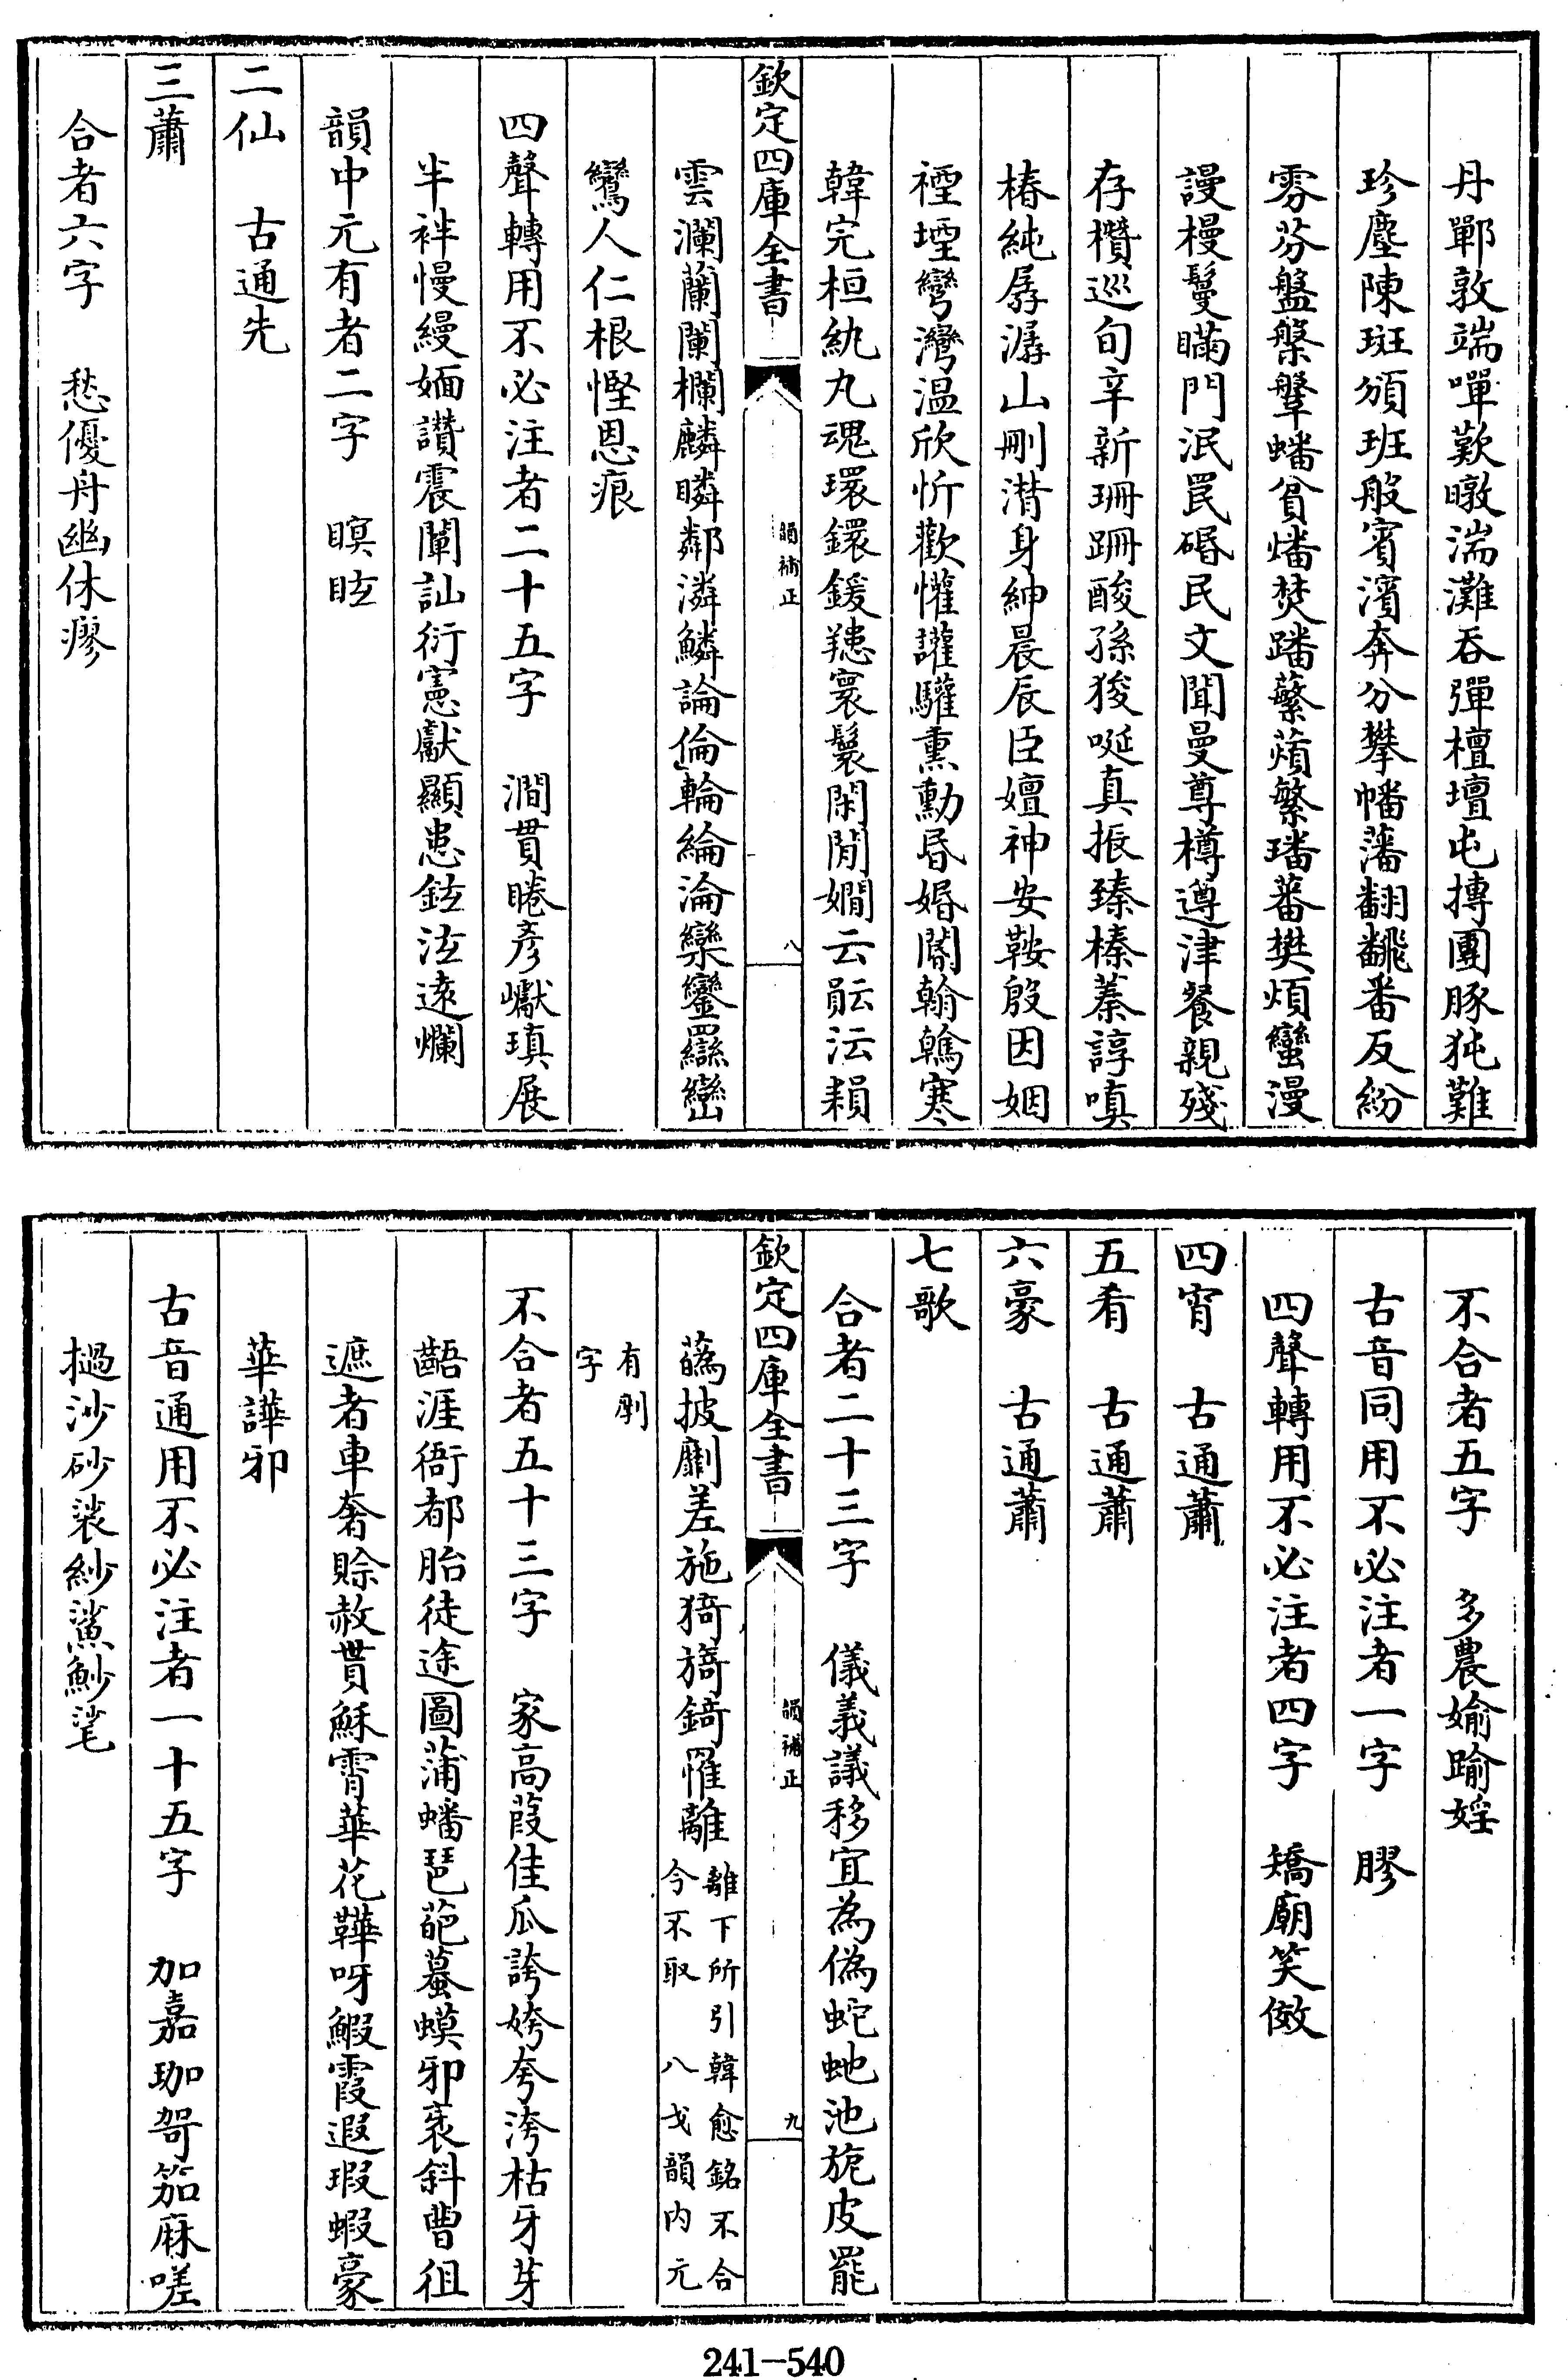 丹鄲敦端嘽歎暾湍灘吞彈檀壇屯摶團豚㹠難
珍塵陳斑頒班般賓濱奔分攀幡藩翻飜番反紛
雰芬盤槃鞶蟠貧燔焚蹯蘩薠繁璠蕃樊煩蠻漫
謾槾鬘瞞門泯罠碈民文聞曼尊樽遵津餐親殘
存欑巡旬辛新珊跚酸孫狻唌真振臻榛蓁諄嗔
椿純孱潺山刪潸身紳晨辰臣嬗神安鞍殷因姻
禋堙彎灣温欣忻歡懽讙驩熏勳昏婚閽翰鶾寒
韓完桓紈丸魂環鐶鍰羱寰鬟閑閒嫺云䢵沄頛
欽定四庫全書
韻補正
八
雲瀾蘭闌欄麟瞵鄰潾鱗論倫輪綸淪欒鑾羉巒
鸞人仁根慳恩痕
四聲轉用不必注者二十五字　澗貫睠彦巘瑱展
半袢慢縵媔讚震闡訕衍憲獻顯患鉉泫遠爛
韻中元有者二字　瞑眩
二仙　古通先
三蕭
合者六字　愁優舟幽休瘳
不合者五字　多農媮踰婬
古音同用不必注者一字　膠
四聲轉用不必注者四字　矯廟笑傲
四宵　古通蕭
五肴　古通蕭
六豪　古通蕭
七歌
合者二十三字　儀義議移宜為偽蛇虵池旎皮罷
欽定四庫全書
韻補正
九
蘤披劘差施猗旖錡罹離離下所引韓愈銘不合今不取　八戈韻内元
有劘字
不合者五十三字　家高葭佳瓜誇姱夸洿枯牙芽
齬涯衙都胎徒途圖蒲蟠琶葩蟇蟆邪衺斜曹徂
遮者車奢賒赦貰穌霄華花鞾呀鰕霞遐瑕蝦豪
華譁邪
古音通用不必注者一十五字　加嘉珈哿笳麻嗟
撾沙砂裟紗鯊魦㲚
241-540